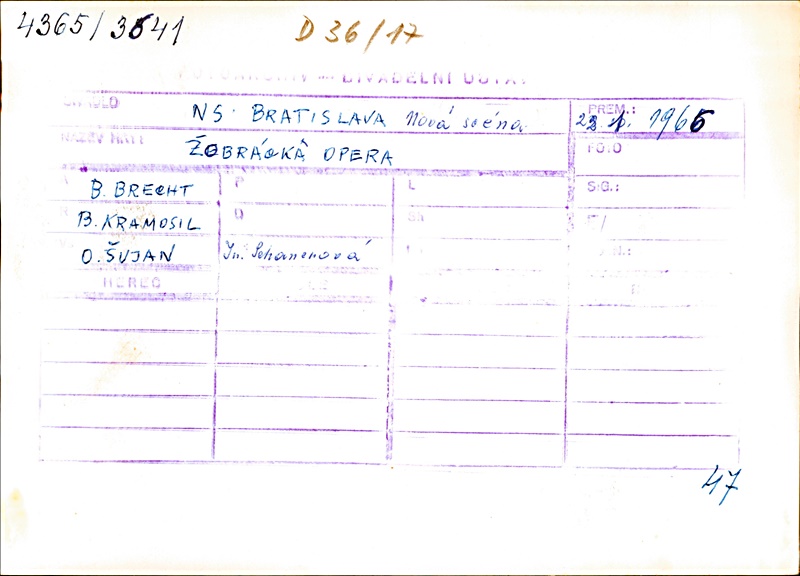 4365/3541 D 36/17
DIVADELNÍ ÚSTAV
DIVADLO NS. BRATISLAVA Nová scéna PREM.: 1965
NÁZEV HRY ŽOBRÁCKÁ OPERA FOTO
B. BRECHT P L SIG.:
B. KRAMOSIL
O. ŠUJAN
HEREC
47